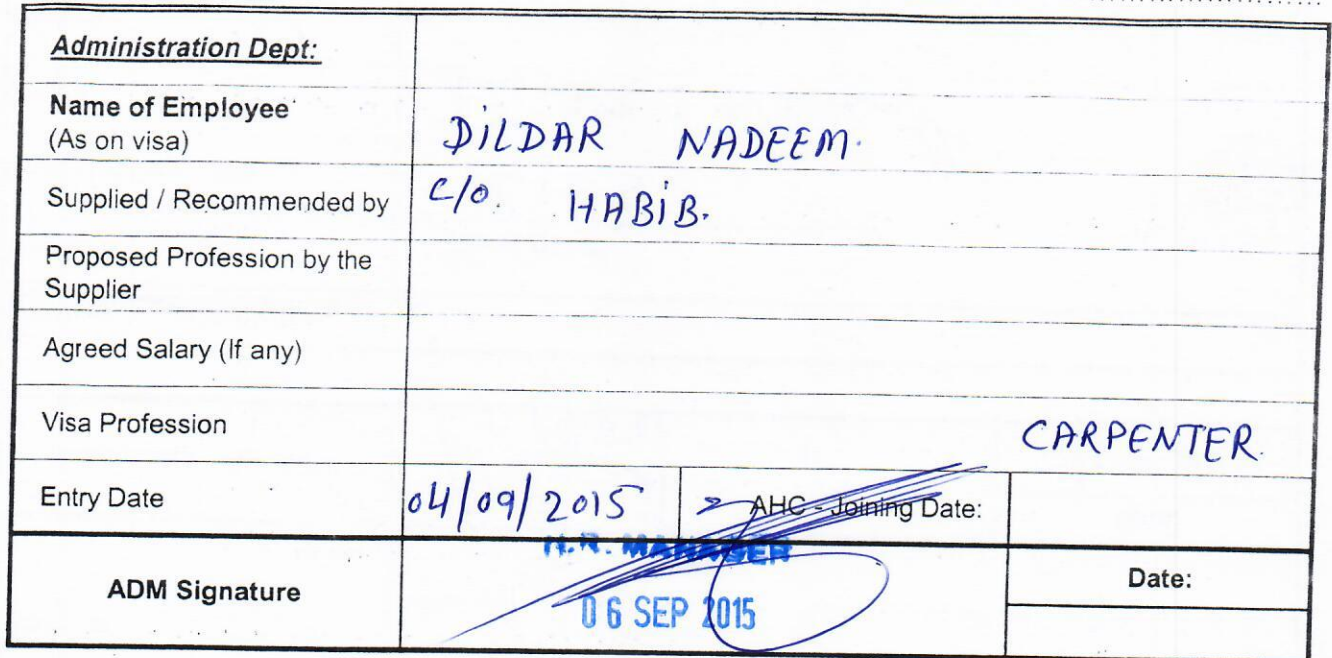 Administration Dept:
Name of Employee
(As on visa)
DILDAR NADEEM.
Supplied / Recommended by
C/O. HABIB.
Proposed Profession by the
Supplier
Agreed Salary (If any)
Visa Profession
CARPENTER.
Entry Date
04/09/2015
AHC - Joining Date:
H.R. MANAGER
ADM Signature
06 SEP 2015
Date: